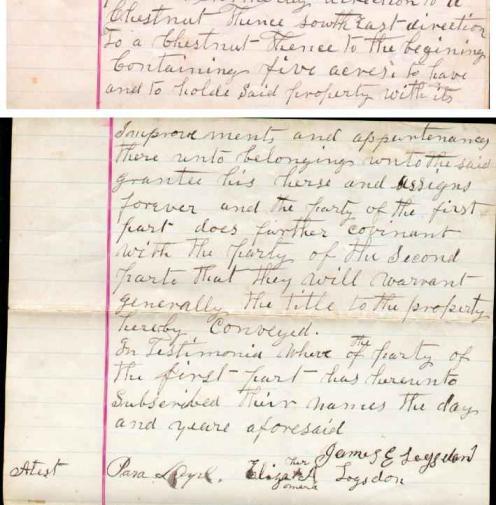 direction to a
Chestnut Thence South East direction
To a Chestnut Thence to the begining
Containing five acres: to have
and to holde said property with its
Improve ments and appurtenances
there unto belonging unto the said
grantee his herse and assigns
forever and the party of the first
part does further covenant
with the party of the Second
parte that they will warrant
generally the title to the property
hereby Conveyed.
In Testimonia Where of the party of
the first part has hereunto
Subscribed their names the day
and yeare aforesaid
James E Logsdon
Atest Eliza her X Logsdon